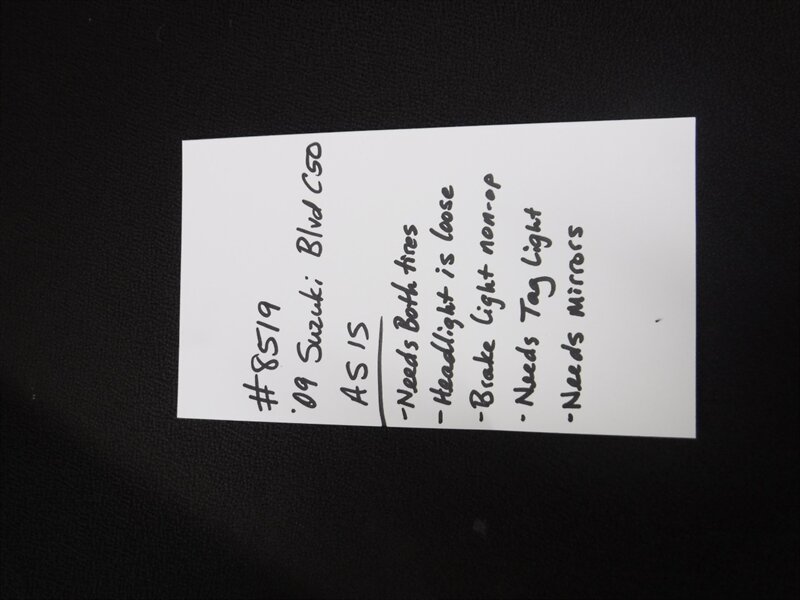 #8519
'09 Suzuki Blvd C50
AS IS
-Needs Both tires
-Headlight is loose
-Brake Light non-op
-Needs Tag Light
-Needs Mirrors